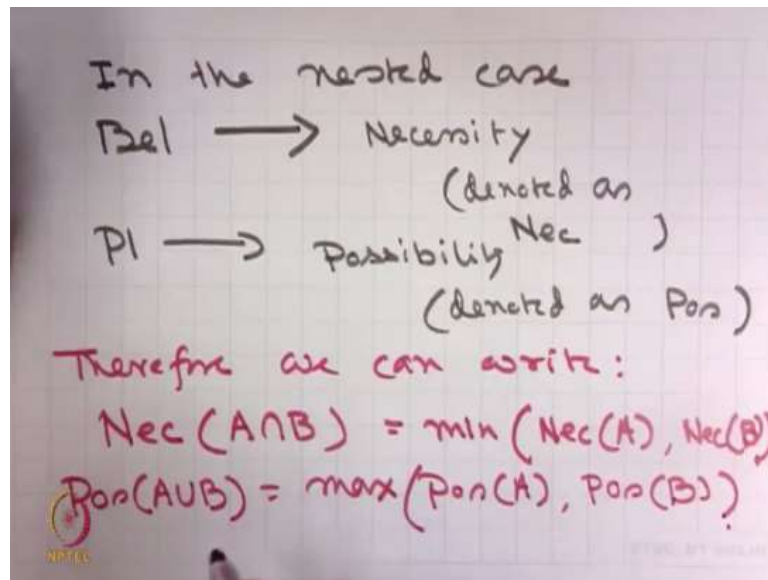 In the nested case
Bel → Necessity
(denoted as
Nec )
Pl → Possibility
(denoted as Pos)
Therefore we can write:
Nec (A∩B) = min (Nec(A), Nec(B)
Pos(A∪B) = max (Pos(A), Pos(B))
NPTEL